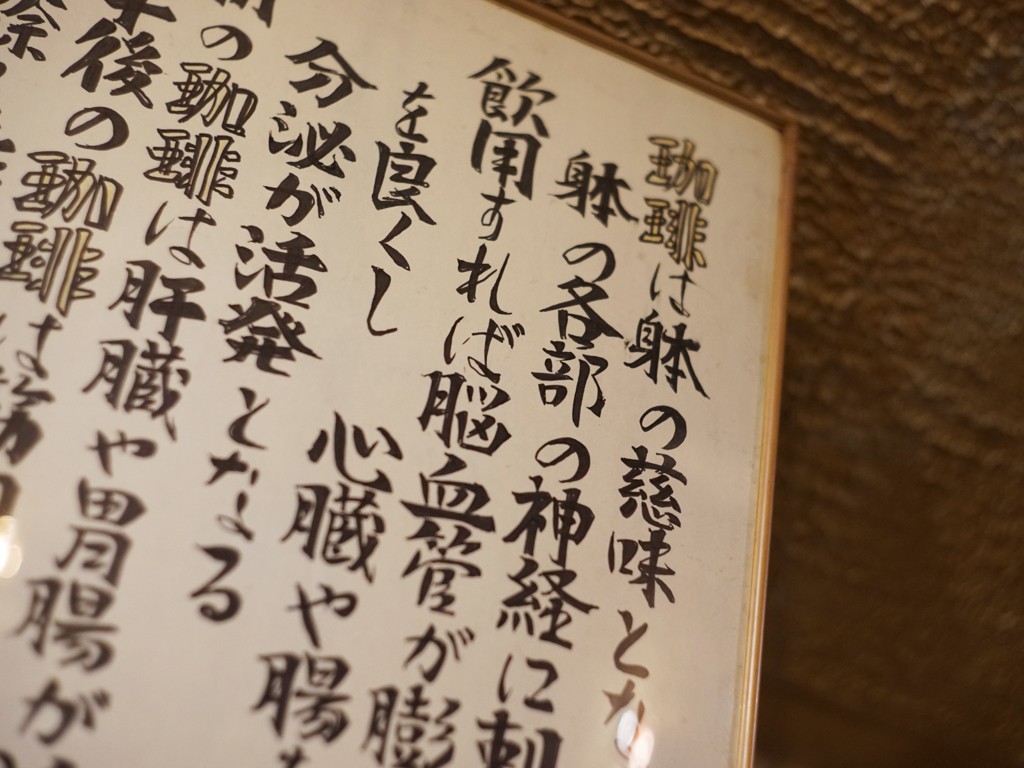 珈琲は躰の慈味とな
躰の各部の神経に刺
飲用すれば脳血管が膨
を良くし 心臓や腸
分泌が活発となる
の珈琲は肝臓や胃腸が
後の珈琲は